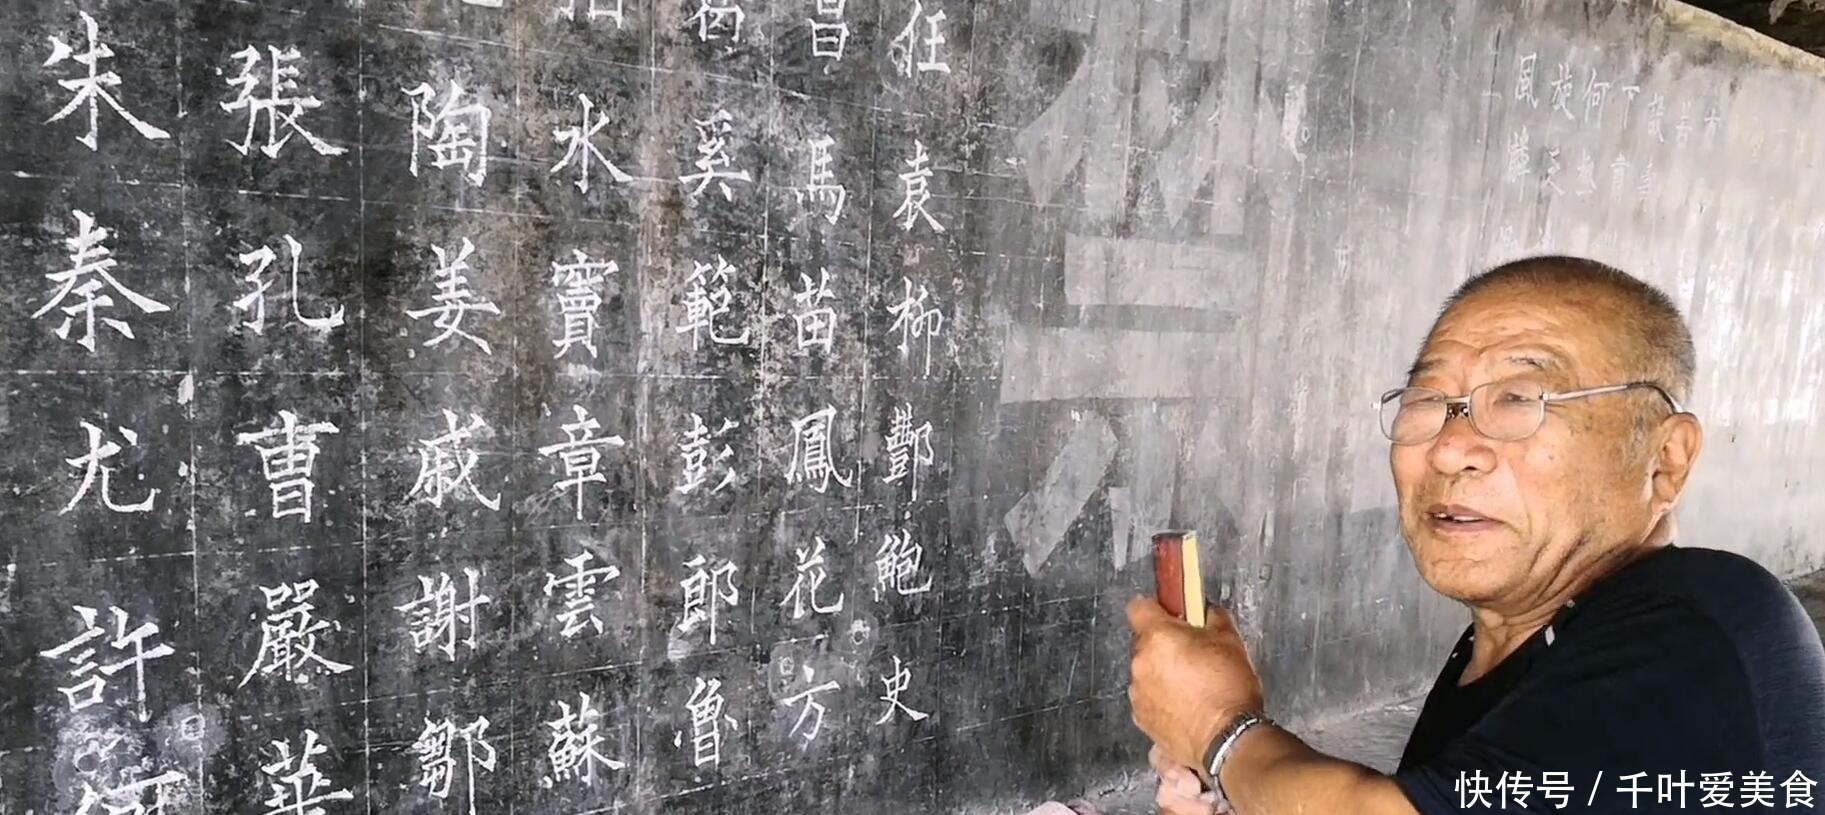 朱秦尤許
張孔曹嚴華
陶姜戚謝鄒
水竇章雲蘇
奚範彭郎魯
昌馬苗鳳花方
任袁柳酆鮑史
風旋何下
快传号 / 千叶爱美食